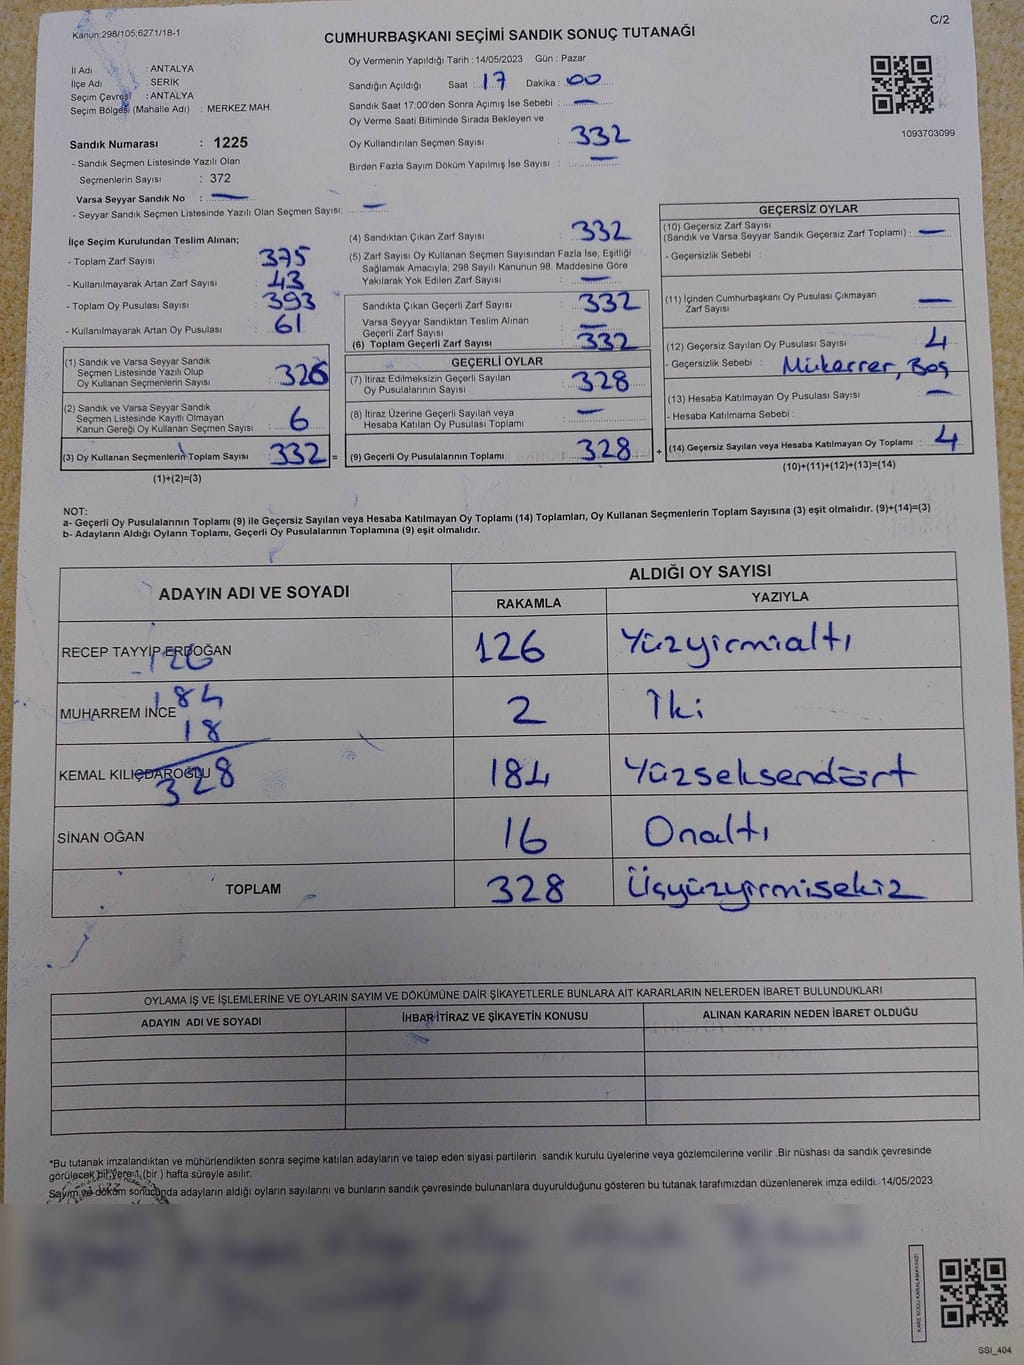 Kanun:298/105;6271/18-1
C/2
CUMHURBAŞKANI SEÇİMİ SANDIK SONUÇ TUTANAĞI
İl Adı : ANTALYA
İlçe Adı : SERİK
Seçim Çevresi : ANTALYA
Seçim Bölgesi (Mahalle Adı) : MERKEZ MAH.
Sandık Numarası : 1225
- Sandık Seçmen Listesinde Yazılı Olan
Seçmenlerin Sayısı : 372
Varsa Seyyar Sandık No : —
- Seyyar Sandık Seçmen Listesinde Yazılı Olan Seçmen Sayısı: —
Oy Vermenin Yapıldığı Tarih : 14/05/2023 Gün : Pazar
Sandığın Açıldığı Saat : 17 Dakika : 00
Sandık Saat 17:00'den Sonra Açımış İse Sebebi : —
Oy Verme Saati Bitiminde Sırada Bekleyen ve
Oy Kullandırılan Seçmen Sayısı : 332
Birden Fazla Sayım Döküm Yapılmış İse Sayısı : —
1093703099
İlçe Seçim Kurulundan Teslim Alınan;
- Toplam Zarf Sayısı : 375
- Kullanılmayarak Artan Zarf Sayısı : 43
- Toplam Oy Pusulası Sayısı : 393
- Kullanılmayarak Artan Oy Pusulası : 61
(1) Sandık ve Varsa Seyyar Sandık
Seçmen Listesinde Yazılı Olup
Oy Kullanan Seçmenlerin Sayısı : 326
(2) Sandık ve Varsa Seyyar Sandık
Seçmen Listesinde Kayıtlı Olmayan
Kanun Gereği Oy Kullanan Seçmen Sayısı : 6
(3) Oy Kullanan Seçmenlerin Toplam Sayısı : 332 =
(1)+(2)=(3)
(4) Sandıktan Çıkan Zarf Sayısı : 332
(5) Zarf Sayısı Oy Kullanan Seçmen Sayısından Fazla İse, Eşitliği
Sağlamak Amacıyla; 298 Sayılı Kanunun 98. Maddesine Göre
Yakılarak Yok Edilen Zarf Sayısı : —
Sandıkta Çıkan Geçerli Zarf Sayısı : 332
Varsa Seyyar Sandıktan Teslim Alınan
Geçerli Zarf Sayısı : —
(6) Toplam Geçerli Zarf Sayısı : 332
GEÇERLİ OYLAR
(7) İtiraz Edilmeksizin Geçerli Sayılan
Oy Pusulalarının Sayısı : 328
(8) İtiraz Üzerine Geçerli Sayılan veya
Hesaba Katılan Oy Pusulası Toplamı : —
(9) Geçerli Oy Pusulalarının Toplamı : 328 +
GEÇERSİZ OYLAR
(10) Geçersiz Zarf Sayısı
(Sandık ve Varsa Seyyar Sandık Geçersiz Zarf Toplamı) : —
- Geçersizlik Sebebi :
(11) İçinden Cumhurbaşkanı Oy Pusulası Çıkmayan
Zarf Sayısı : —
(12) Geçersiz Sayılan Oy Pusulası Sayısı : 4
- Geçersizlik Sebebi : Mükerrer, Boş
(13) Hesaba Katılmayan Oy Pusulası Sayısı : —
- Hesaba Katılmama Sebebi :
(14) Geçersiz Sayılan veya Hesaba Katılmayan Oy Toplamı : 4
(10)+(11)+(12)+(13)=(14)
NOT:
a- Geçerli Oy Pusulalarının Toplamı (9) ile Geçersiz Sayılan veya Hesaba Katılmayan Oy Toplamı (14) Toplamları, Oy Kullanan Seçmenlerin Toplam Sayısına (3) eşit olmalıdır. (9)+(14)=(3)
b- Adayların Aldığı Oyların Toplamı, Geçerli Oy Pusulalarının Toplamına (9) eşit olmalıdır.
ADAYIN ADI VE SOYADI ALDIĞI OY SAYISI
RAKAMLA YAZIYLA
RECEP TAYYİP ERDOĞAN 126 Yüzyirmialtı
126
184
MUHARREM İNCE 2 İki
18
KEMAL KILIÇDAROĞLU 184 Yüzseksendört
328
SİNAN OĞAN 16 Onaltı
TOPLAM 328 Üçyüzyirmisekiz
OYLAMA İŞ VE İŞLEMLERİNE VE OYLARIN SAYIM VE DÖKÜMÜNE DAİR ŞİKAYETLERLE BUNLARA AİT KARARLARIN NELERDEN İBARET BULUNDUKLARI
ADAYIN ADI VE SOYADI İHBAR İTİRAZ VE ŞİKAYETİN KONUSU ALINAN KARARIN NEDEN İBARET OLDUĞU
*Bu tutanak imzalandıktan ve mühürlendikten sonra seçime katılan adayların ve talep eden siyasi partilerin sandık kurulu üyelerine veya gözlemcilerine verilir .Bir nüshası da sandık çevresinde
görülecek bir yere 1 (bir ) hafta süreyle asılır.
Sayım ve döküm sonucunda adayların aldığı oyların sayılarını ve bunların sandık çevresinde bulunanlara duyurulduğunu gösteren bu tutanak tarafımızdan düzenlenerek imza edildi. 14/05/2023
KARE KODU KARALAMAYINIZ!
SSI_404